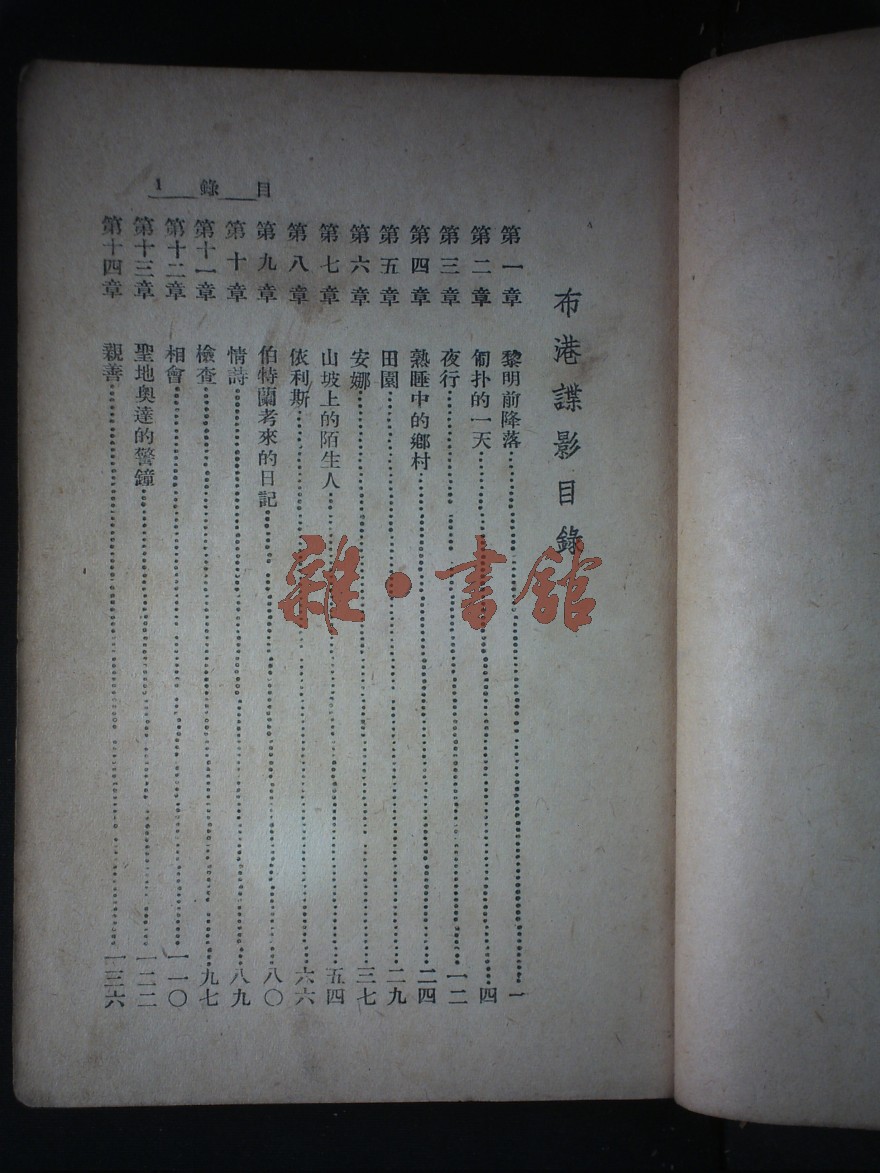 目錄 1
布港諜影目錄
第一章 黎明前降落 一
第二章 匍扑的一天 四
第三章 夜行 一二
第四章 熟睡中的鄉村 二四
第五章 田園 二九
第六章 安娜 三七
第七章 山坡上的陌生人 五四
第八章 依利斯 六六
第九章 伯特蘭考來的日記 八〇
第十章 情詩 八九
第十一章 檢查 九七
第十二章 相會 一一〇
第十三章 聖地奧達的警鐘 一二二
第十四章 親善 一三六
雜·書館